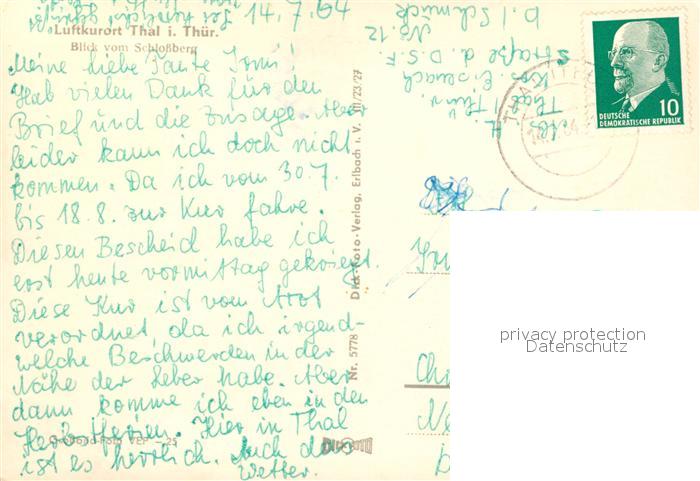 14.7.64
Luftkurort Thal i. Thür.
Blick vom Schloßberg
Meine liebe Tante Toni!
Hab vielen Dank für den
Brief und die Zusage. Aber
leider kann ich doch nicht
kommen. Da ich vom 30.7.
bis 18.8. zur Kur fahre.
Diesen Bescheid habe ich
erst heute vormittag gekriegt.
Diese Kur ist vom Arzt
verordnet, da ich irgend-
welche Beschwerden in der
Nähe der Leber habe. Aber
dann komme ich eben in den
Herbstferien. Hier in Thal
ist es herrlich. Auch das
Wetter.
VEP - 25
Nr. 5778 Dick-Foto-Verlag, Erlbach i. V. III/23/27
b. / Schmück
Nr. 12
Straße d. D.S.F.
Krs. Eisenach
Thal / Thür.
DEUTSCHE
DEMOKRATISCHE REPUBLIK
10
privacy protection
Datenschutz